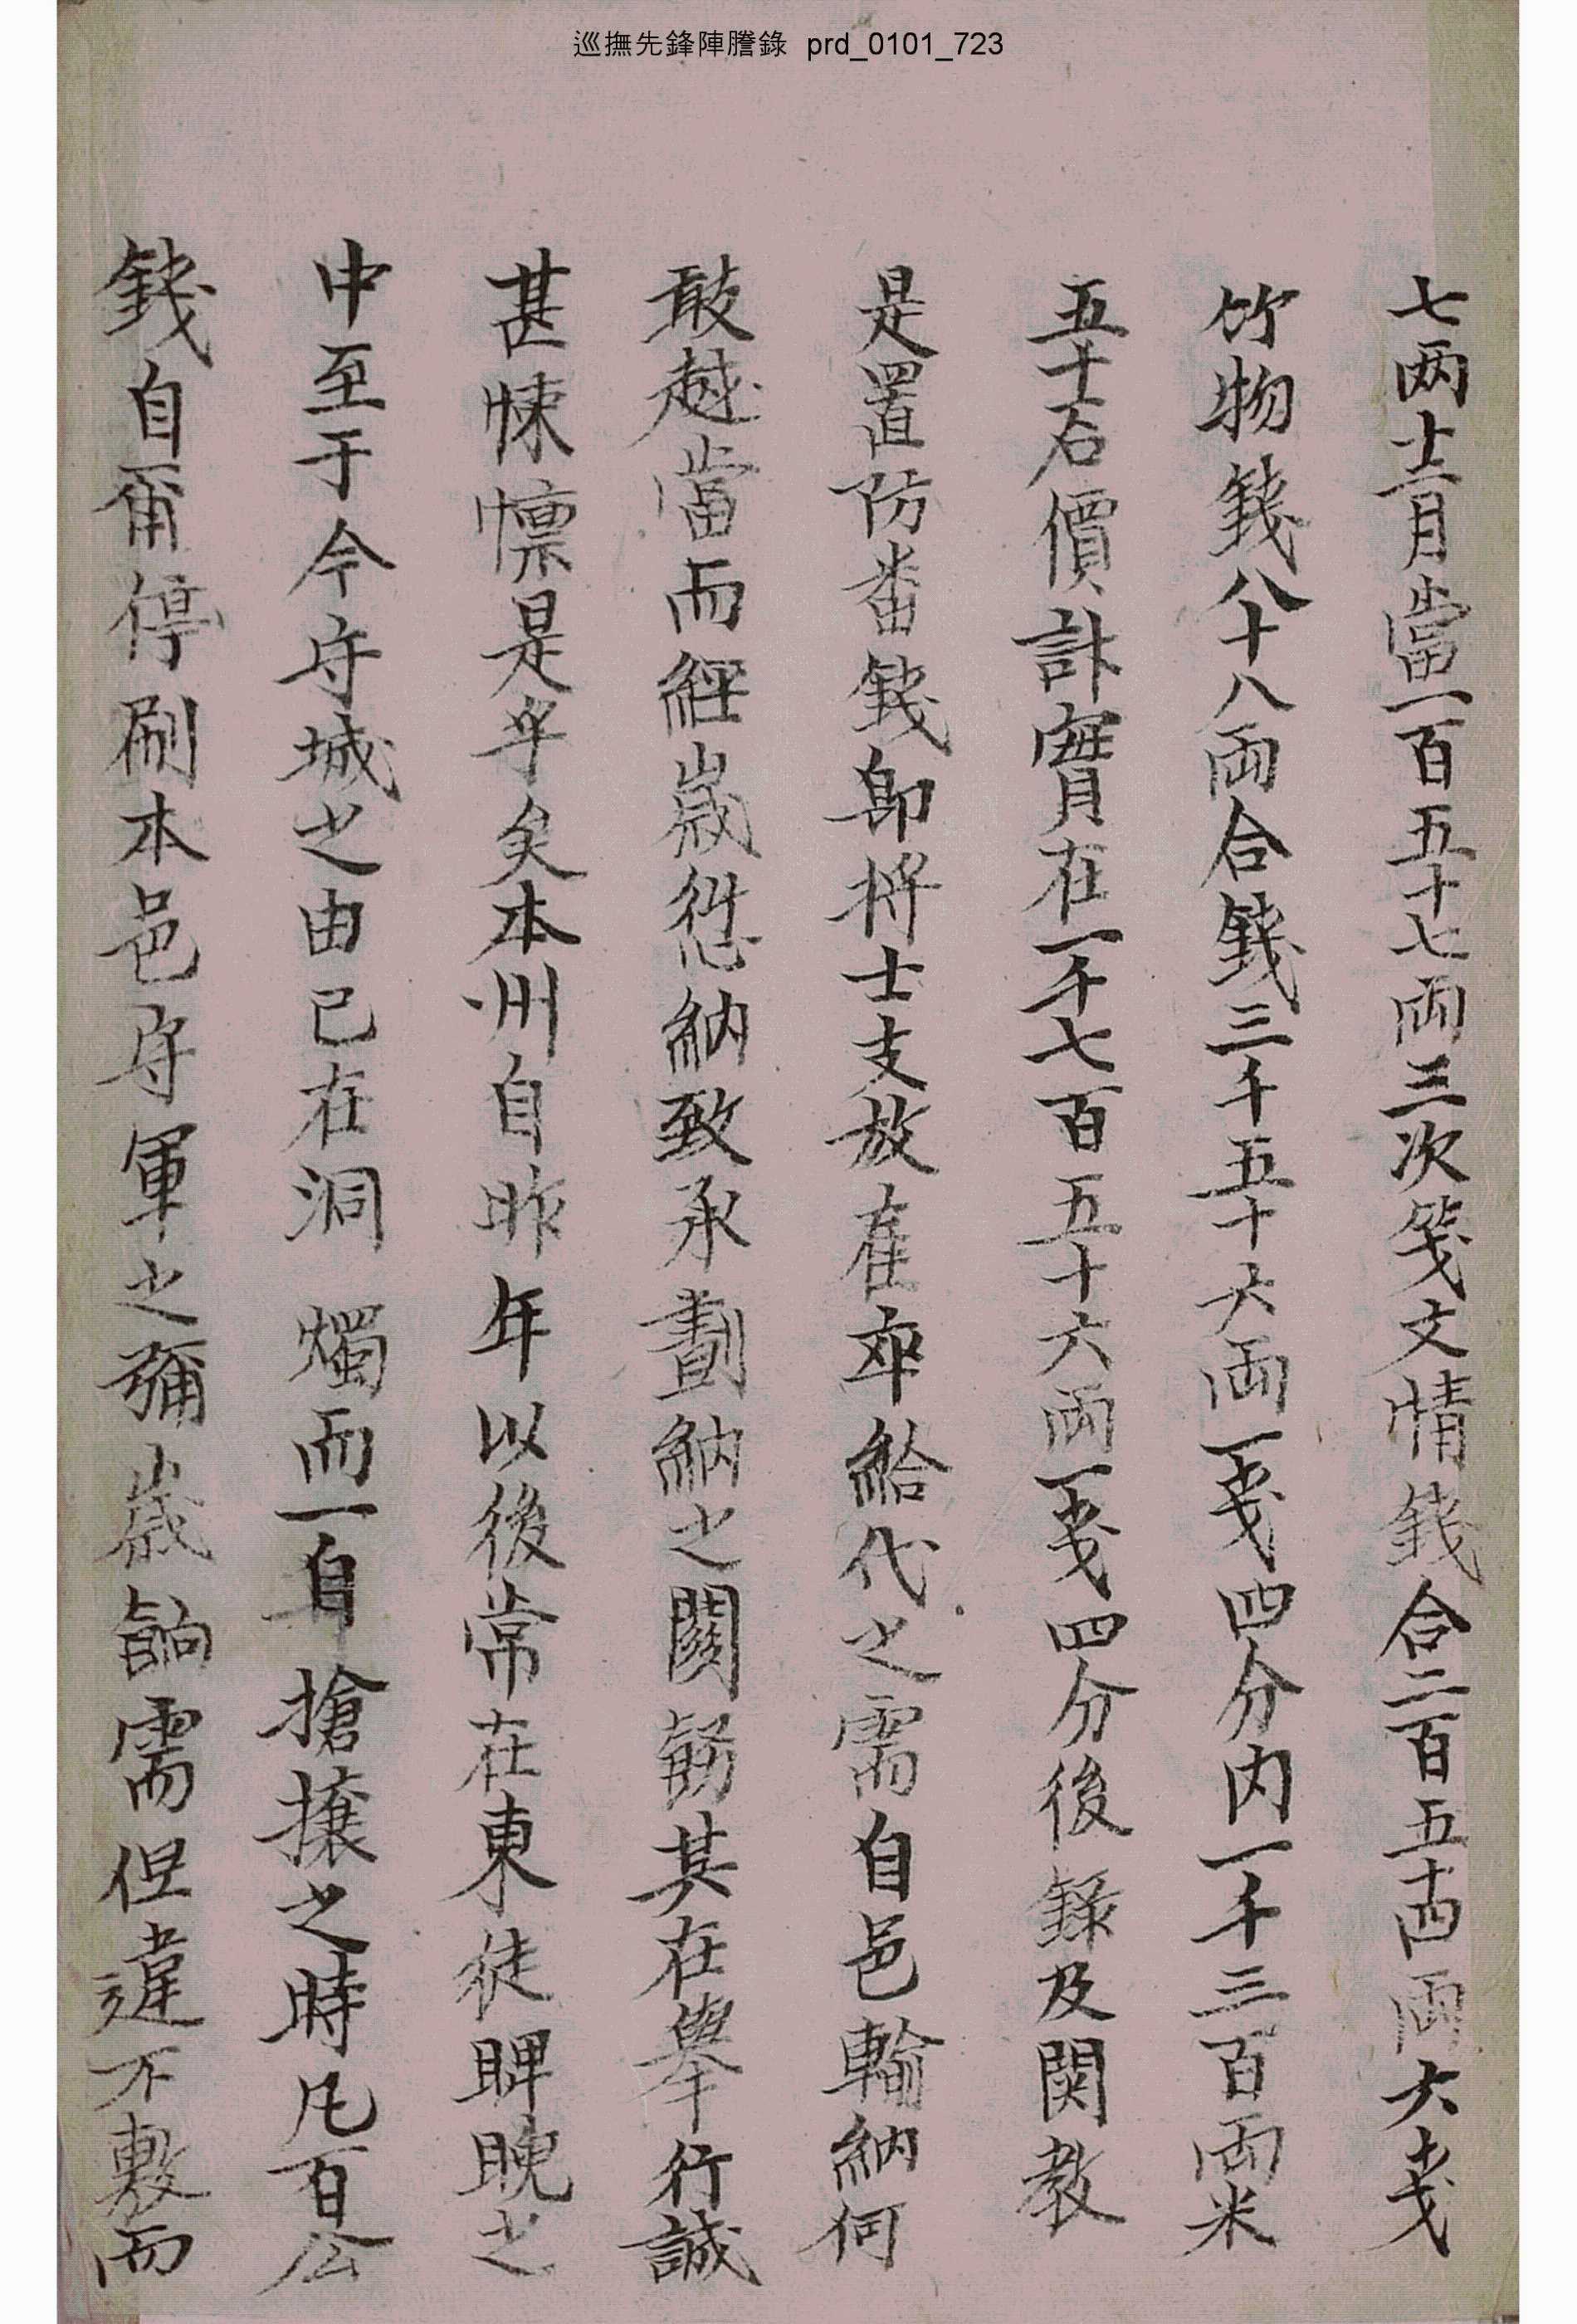 巡撫先鋒陣謄錄 prd_0101_723
七两十二月當一百五十七両三次箋文情錢合二百五十四両六戔
竹物錢八十八両合錢三千五十六両一戔四分内一千三百両米
五十石價計實在一千七百五十六両一戔四分後錄及関教
是置防番錢卽將士支放雇卒給代之需自邑輸納何
敢越當而經歲愆納致承劃納之關飭其在擧行誠
甚悚懍是乎矣本州自昨年以後常在東徒睥睨之
中至于今守城之由已在洞燭而一自搶攘之時凡百公
錢自爾停刷本邑守軍之彌歲餉需但違不敷而